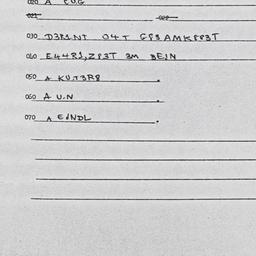 020 A C U.G
021 022
030 D3R1.NT 04T GP3AMKPP3T
040 E44R1,ZP3T 3M BEIN
050 A KUT3R8.
060 A U.N.
070 A EINDL.